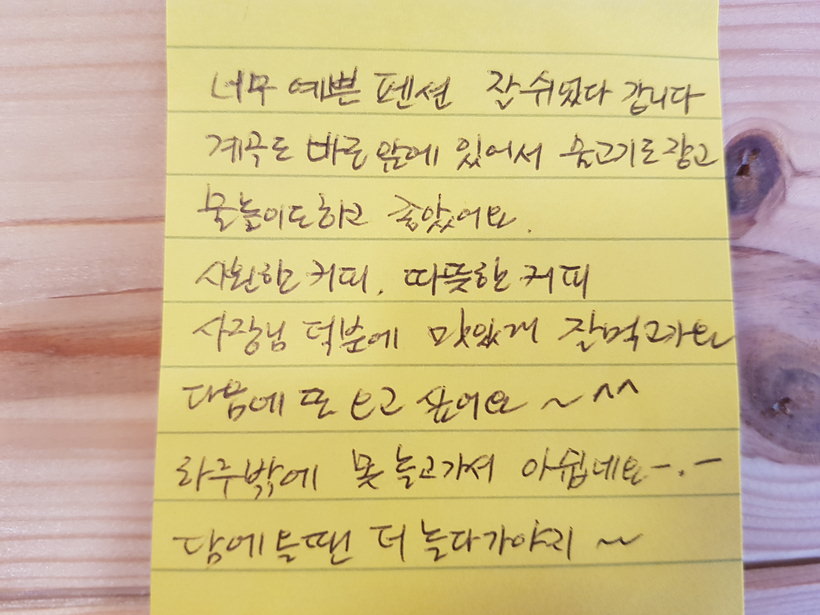 너무 예쁜 펜션 잘 쉬었다 갑니다
계곡도 바로 앞에 있어서 물고기도 잡고
물놀이도 하고 좋았어요.
시원한 커피, 따뜻한 커피
사장님 덕분에 맛있게 잘먹고가요
다음에 또 오고 싶어요 ~ ^^
하루밖에 못 놀고가서 아쉽네요-.-
담에 올땐 더 놀다가야지 ~